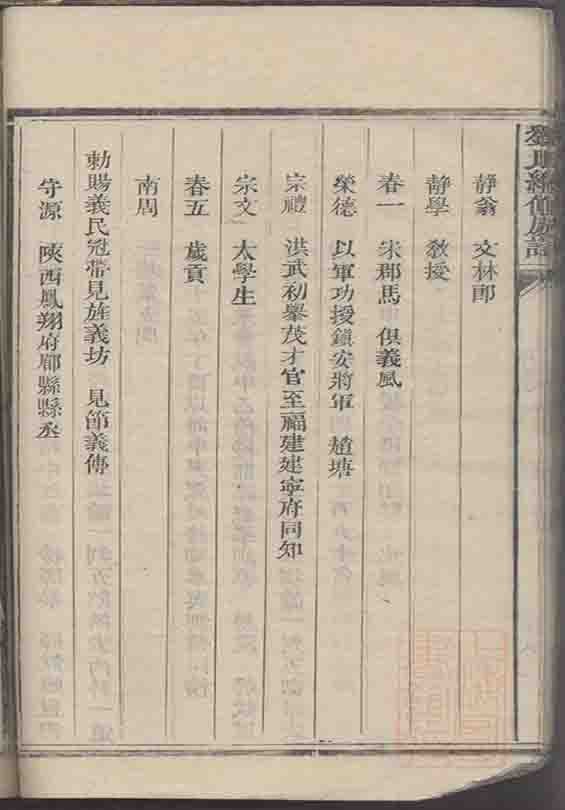 靜翁 文林郎
靜學 教授
春一 宋郡馬 俱義風
榮德 以軍功授鎮安將軍 趙塘
宗禮 洪武初舉茂才官至福建建寧府同知
宗文 太學生
春五 歲貢
南周
勅賜義民冠帶見旌義坊 見節義傳
守源 陝西鳳翔府郿縣縣丞